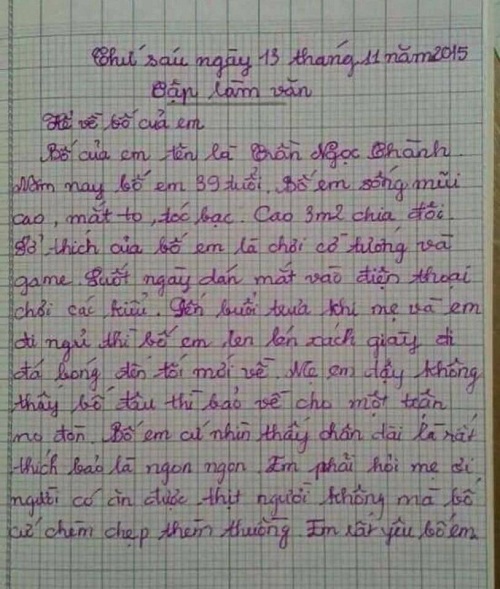 Thứ sáu ngày 13 tháng 11 năm 2015
Tập làm văn
Kể về bố của em
Bố của em tên là Trần Ngọc Thành.
Năm nay bố em 39 tuổi. Bố em sống mũi
cao, mắt to, tóc bạc. Cao 3m2 chia đôi.
Sở thích của bố em là chơi cờ tướng và
game. Suốt ngày dán mắt vào điện thoại
chơi các kiểu. Đến buổi trưa khi mẹ và em
đi ngủ thì bố em len lén xách giày đi
đá bóng đến tối mới về. Mẹ em dậy không
thấy bố đâu thì bảo về cho một trận
no đòn. Bố em cứ nhìn thấy chân dài là rất
thích bảo là ngon ngon. Em phải hỏi mẹ ơi
người có ăn được thịt người không mà bố
cứ chem chẹp thèm thuồng. Em rất yêu bố em